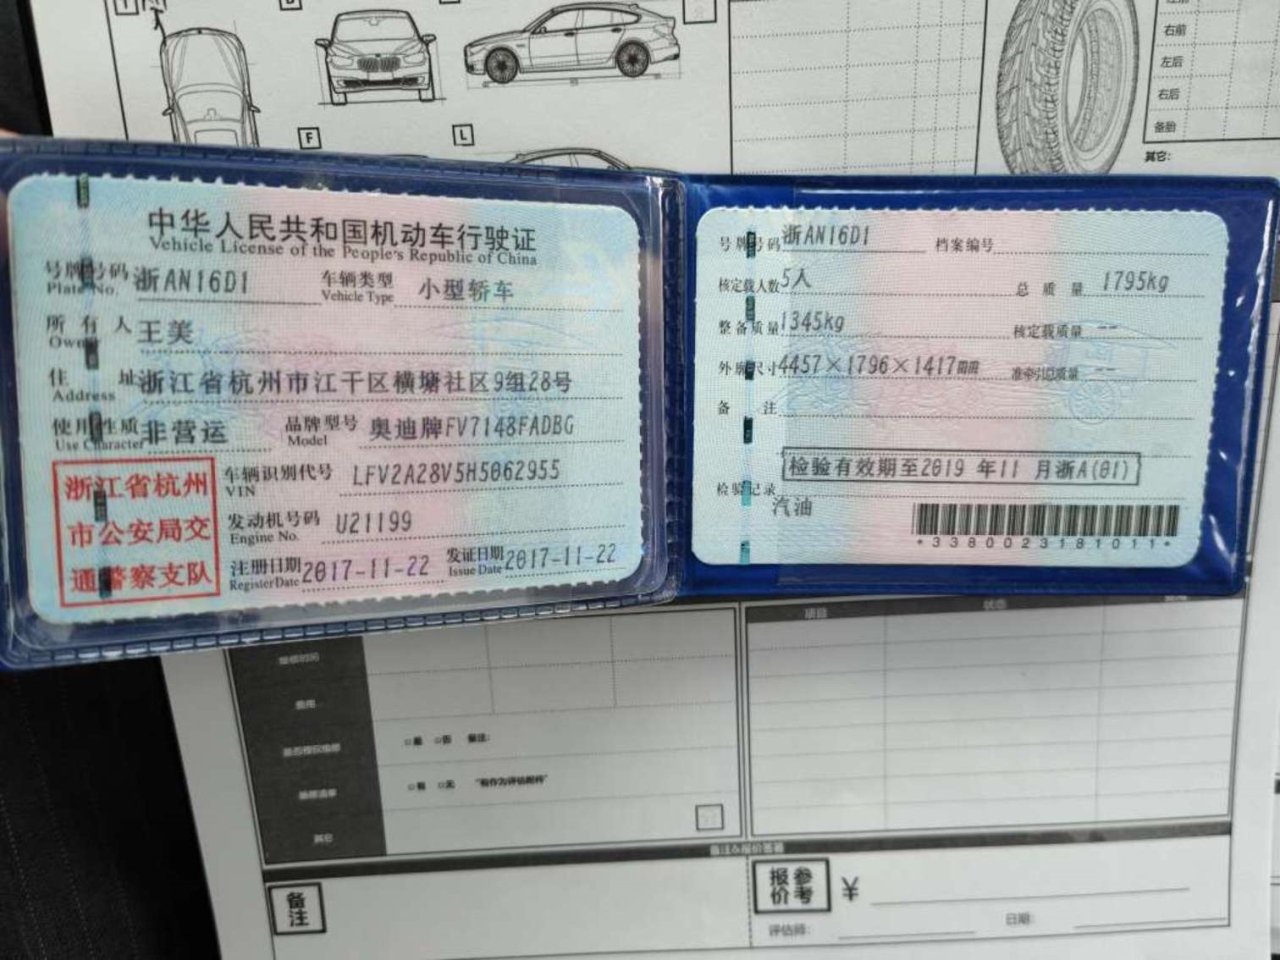 F
L
右前
左后
右后
备胎
其它:
中华人民共和国机动车行驶证
Vehicle License of the People's Republic of China
号牌号码 浙AN16D1 车辆类型 小型轿车
Plate No. Vehicle Type
所有人 王美
Owner
住址 浙江省杭州市江干区横塘社区9组28号
Address
使用性质 非营运 品牌型号 奥迪牌FV7148FADBG
Use Character Model
浙江省杭州
市公安局交
通警察支队
车辆识别代号 LFV2A28V5H5062955
VIN
发动机号码 U21199
Engine No.
注册日期 2017-11-22 发证日期 2017-11-22
Register Date Issue Date
号牌号码 浙AN16D1 档案编号
核定载人数 5人 总质量 1795kg
整备质量 1345kg 核定载质量 --
外廓尺寸 4457×1796×1417mm 准牵引总质量 --
备注
检验有效期至2019 年11 月浙A(01)
检验记录
汽油
*3380023181011*
项目 状态
费用
□是 □否 备注:
□有 □无 "有作为评估附件"
其它
备注
参考
报价
¥
评估师: 日期: